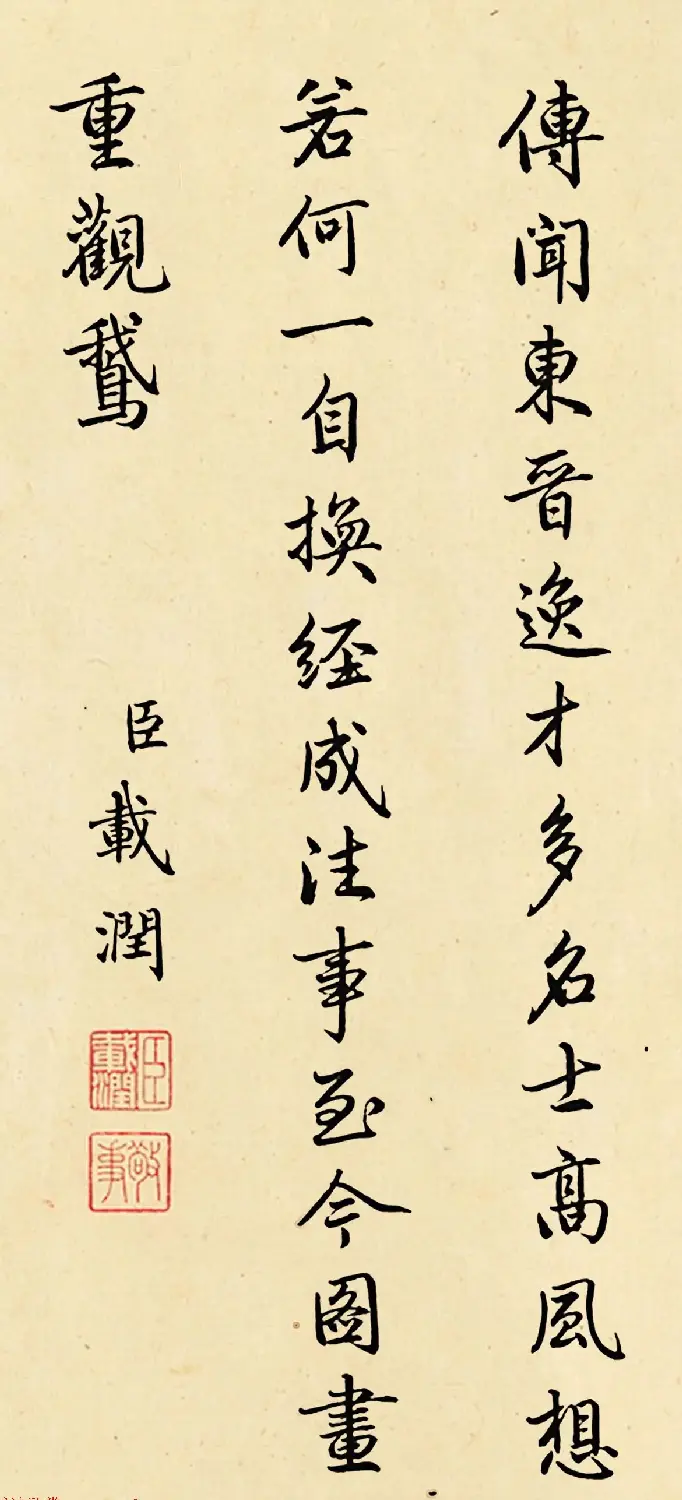 傳聞東晉逸才多名士高風想
若何一自換經成法事至今圖畫
重觀鵞
臣載潤
臣載潤
敬事